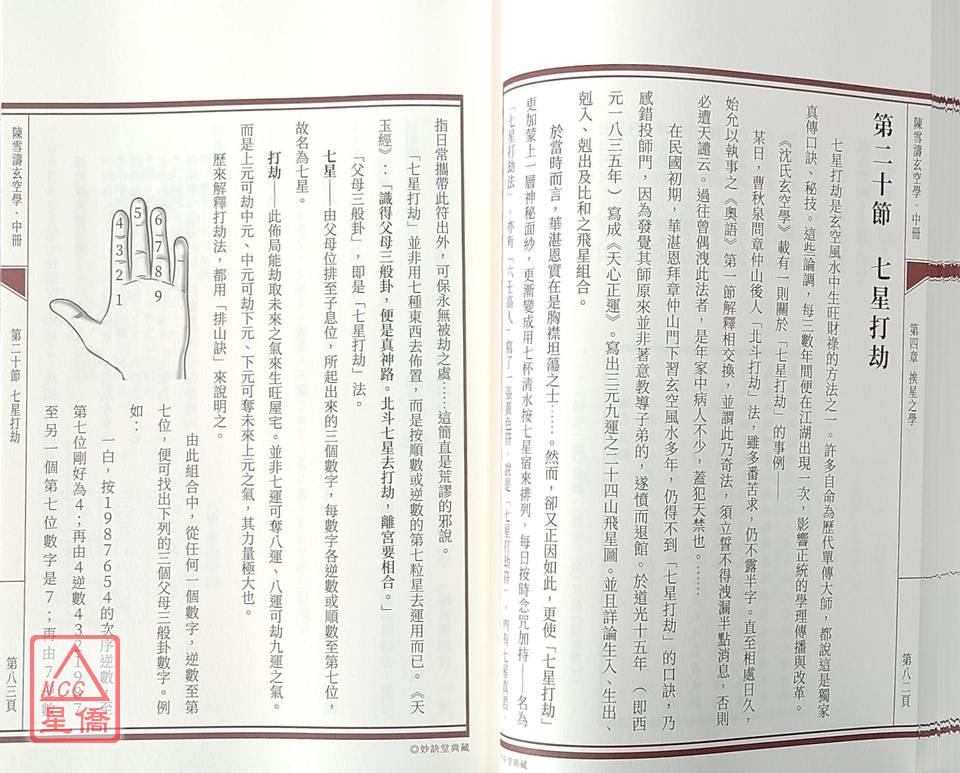 陳雪濤玄空學．中冊
第四章 挨星之學
第八二頁
第二十節 七星打劫
七星打劫是玄空風水中生旺財祿的方法之一。許多自命為歷代單傳大師，都說這是獨家
真傳口訣、秘技。這些論調，每三數年間便在江湖出現一次，影響正統的學理傳播與改革。
《沈氏玄空學》載有一則關於「七星打劫」的事例——
某日，曹秋泉問章仲山後人「北斗打劫」法，雖多番苦求，仍不露半字。直至相處日久，
始允以執事之《奧語》第一節解釋相交換，並謂此乃奇法，須立誓不得洩漏半點消息，否則
必遭天譴云。過往曾偶洩此法者，是年家中病人不少，蓋犯天禁也。……
在民國初期，華湛恩拜章仲山門下習玄空風水多年，仍得不到「七星打劫」的口訣，乃
感錯投師門，因為發覺其師原來並非著意教導子弟的，遂憤而退館。於道光十五年（即西
元一八三五年）寫成《天心正運》。寫出三元九運之二十四山飛星圖。並且詳論生入、生出、
剋入、剋出及比和之飛星組合。
於當時而言，華湛恩實在是胸襟坦蕩之士……。然而，卻又正因如此，更使「七星打劫」
更加蒙上一層神秘面紗，更漸變成用七杯清水按七星宿來排列，每日按時念咒加持——名為
「七星打劫法」。亦有「六壬高人」寫了一張黃色符，說是「七星打劫符」，
◎妙訣堂典藏
指日常攜帶此符出外，可保永無被劫之處……這簡直是荒謬的邪說。
「七星打劫」並非用七種東西去佈置，而是按順數或逆數的第七粒星去運用而已。《天
玉經》：「識得父母三般卦，便是真神路。北斗七星去打劫，離宮要相合。」
「父母三般卦」，即是「七星打劫」法。
七星——由父母位排至子息位，所起出來的三個數字，每數字各逆數或順數至第七位，
故名為七星。
打劫——此佈局能劫取未來之氣來生旺屋宅。並非七運可奪八運、八運可劫九運之氣。
而是上元可劫中元、中元可劫下元、下元可奪未來上元之氣，其力量極大也。
歷來解釋打劫法，都用「排山訣」來說明之。
4
3
2
1
5
6
7
8
9
由此組合中，從任何一個數字，逆數至第
七位，便可找出下列的三個父母三般卦數字。例
如：
一白，按１９８７６５４的次序逆數，至
第七位剛好為４；再由４逆數４３２１９８７
至另一個第七位數字是７；再由７逆數
陳雪濤玄空學．中冊
第二十節 七星打劫
第八三頁
◎妙訣堂典藏
NCC
星僑